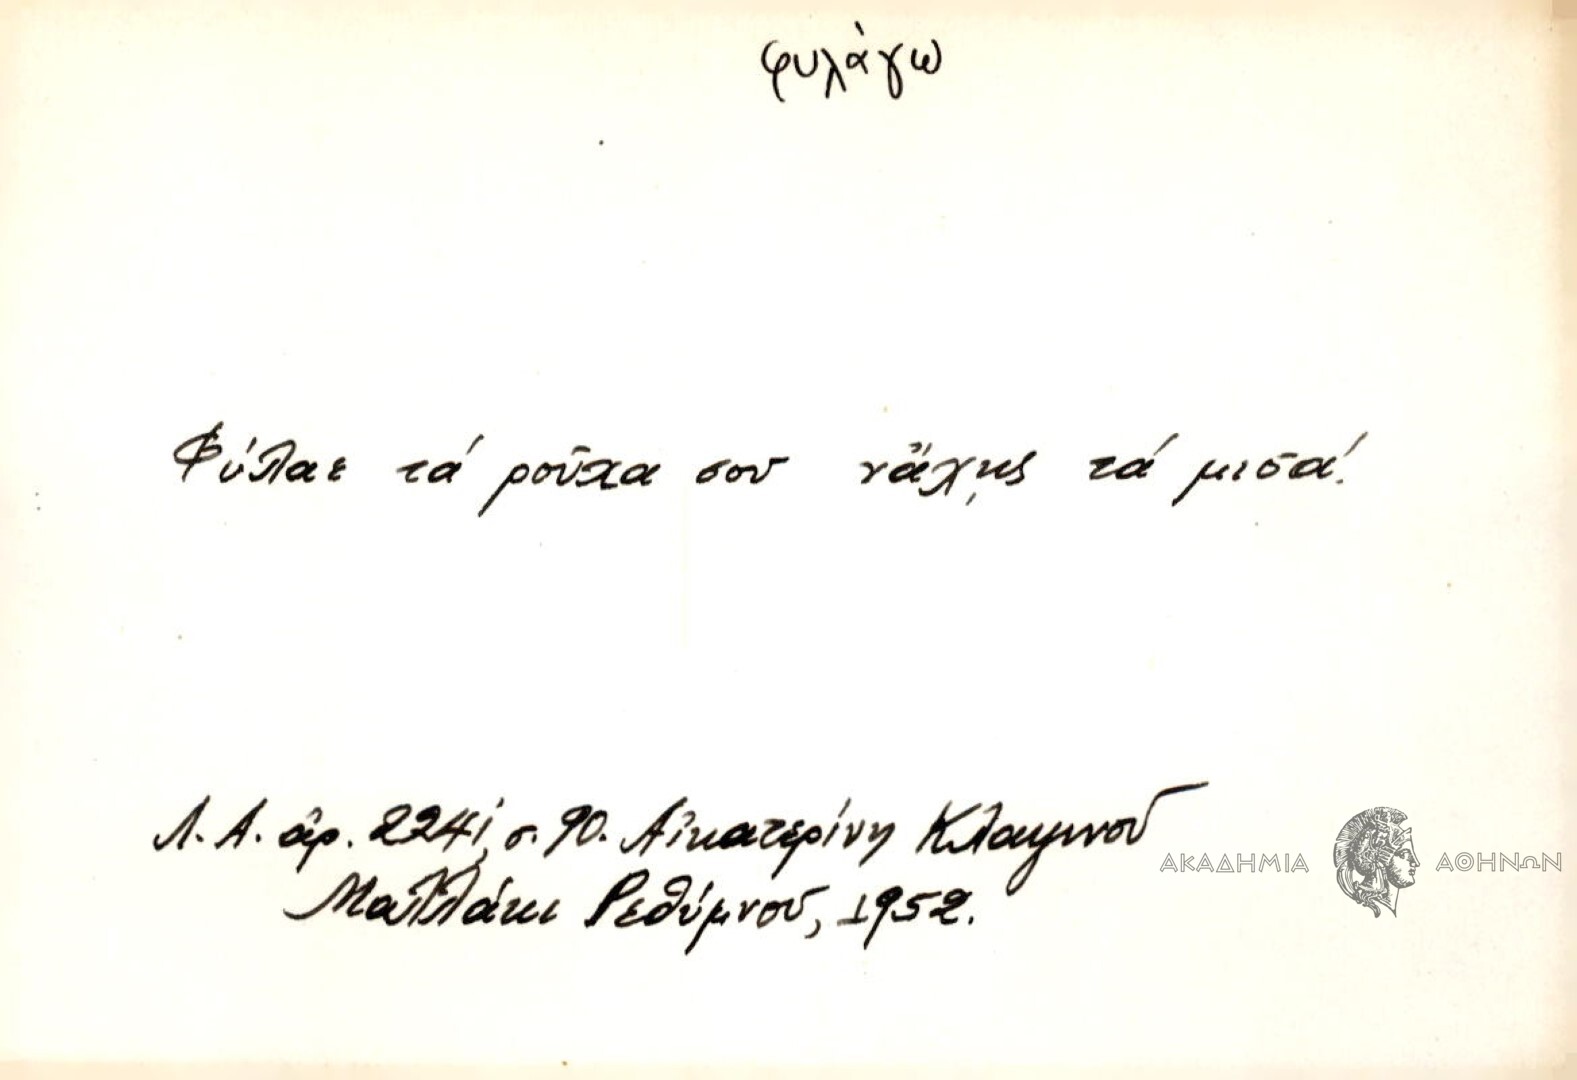 φυλάγω
Φύλαε τά ροῦχα σου νἄχῃς τά μισά!
Λ. Α. ἀρ. 2241, σ. 90. Αἰκατερίνη
Μαλλάκι Ρεθύμνου, 1952.
ΑΚΑΔΗΜΙΑ ΑΘΗΝΩΝ